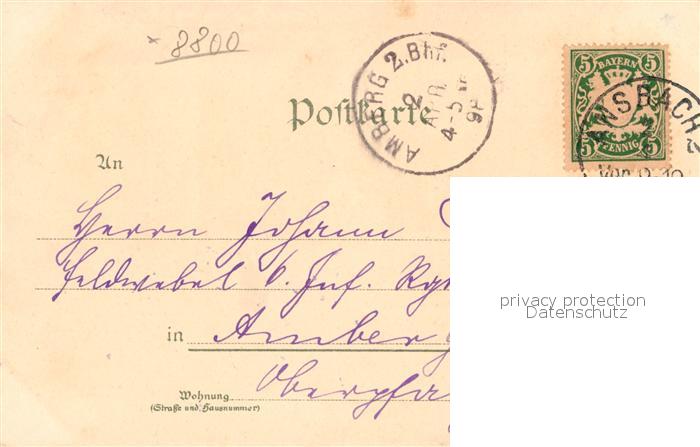 * 8800
AMBERG 2.Bhf.
2
APR.
4-5
98
5 BAYERN 5
5 PFENNIG 5
ANSBACH
Postkarte
An
Herrn Johann
Feldwebel 6. Inf. Rgt
privacy protection
Datenschutz
in Amberg
Oberpfa
Wohnung
(Straße und Hausnummer)